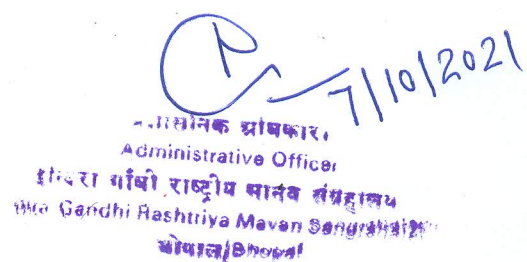 7/10/2021
प्रशासनिक अधिकारी
Administrative Officer
इन्दिरा गाँधी राष्ट्रीय मानव संग्रहालय
Gandhi Rashtriya Manav Sangrahalaya
भोपाल/Bhopal